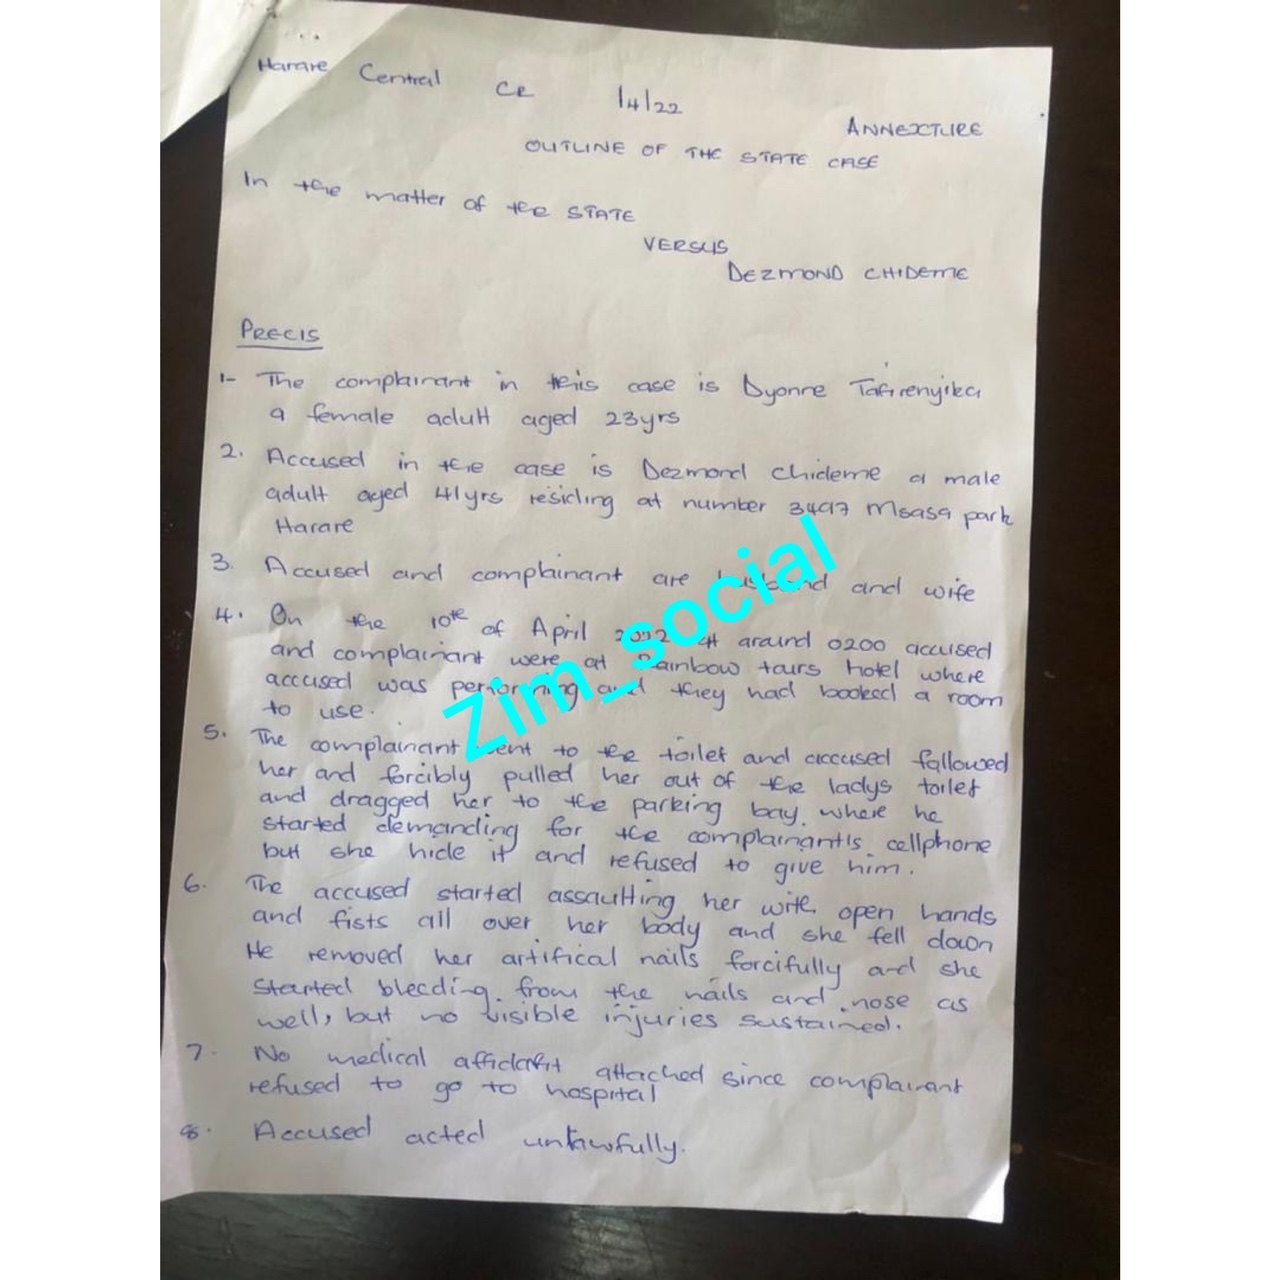 Harare Central CR /4/22
ANNEXTURE
OUTLINE OF THE STATE CASE
In the matter of the STATE
VERSUS
DEZMOND CHIDEME
PRECIS
1- The complainant in this case is Dyonne Tafirenyika
a female adult aged 23yrs
2. Accused in the case is Dezmond Chideme a male
adult aged 41yrs residing at number 3497 Msasa park
Harare
3. Accused and complainant are husband and wife
4. On the 10th of April 2022 at around 0200 accused
and complainant were at Rainbow tours hotel where
accused was performing and they had booked a room
to use.
5. The complainant went to the toilet and accused followed
her and forcibly pulled her out of the ladys toilet
and dragged her to the parking bay. where he
started demanding for the complainant's cellphone
but she hide it and refused to give him.
6. The accused started assaulting her with open hands
and fists all over her body and she fell down
He removed her artifical nails forcifully and she
started bleeding from the nails and nose as
well, but no visible injuries sustained.
7. No medical affidafit attached since complainant
refused to go to hospital
8. Accused acted unlawfully.
Zim_social